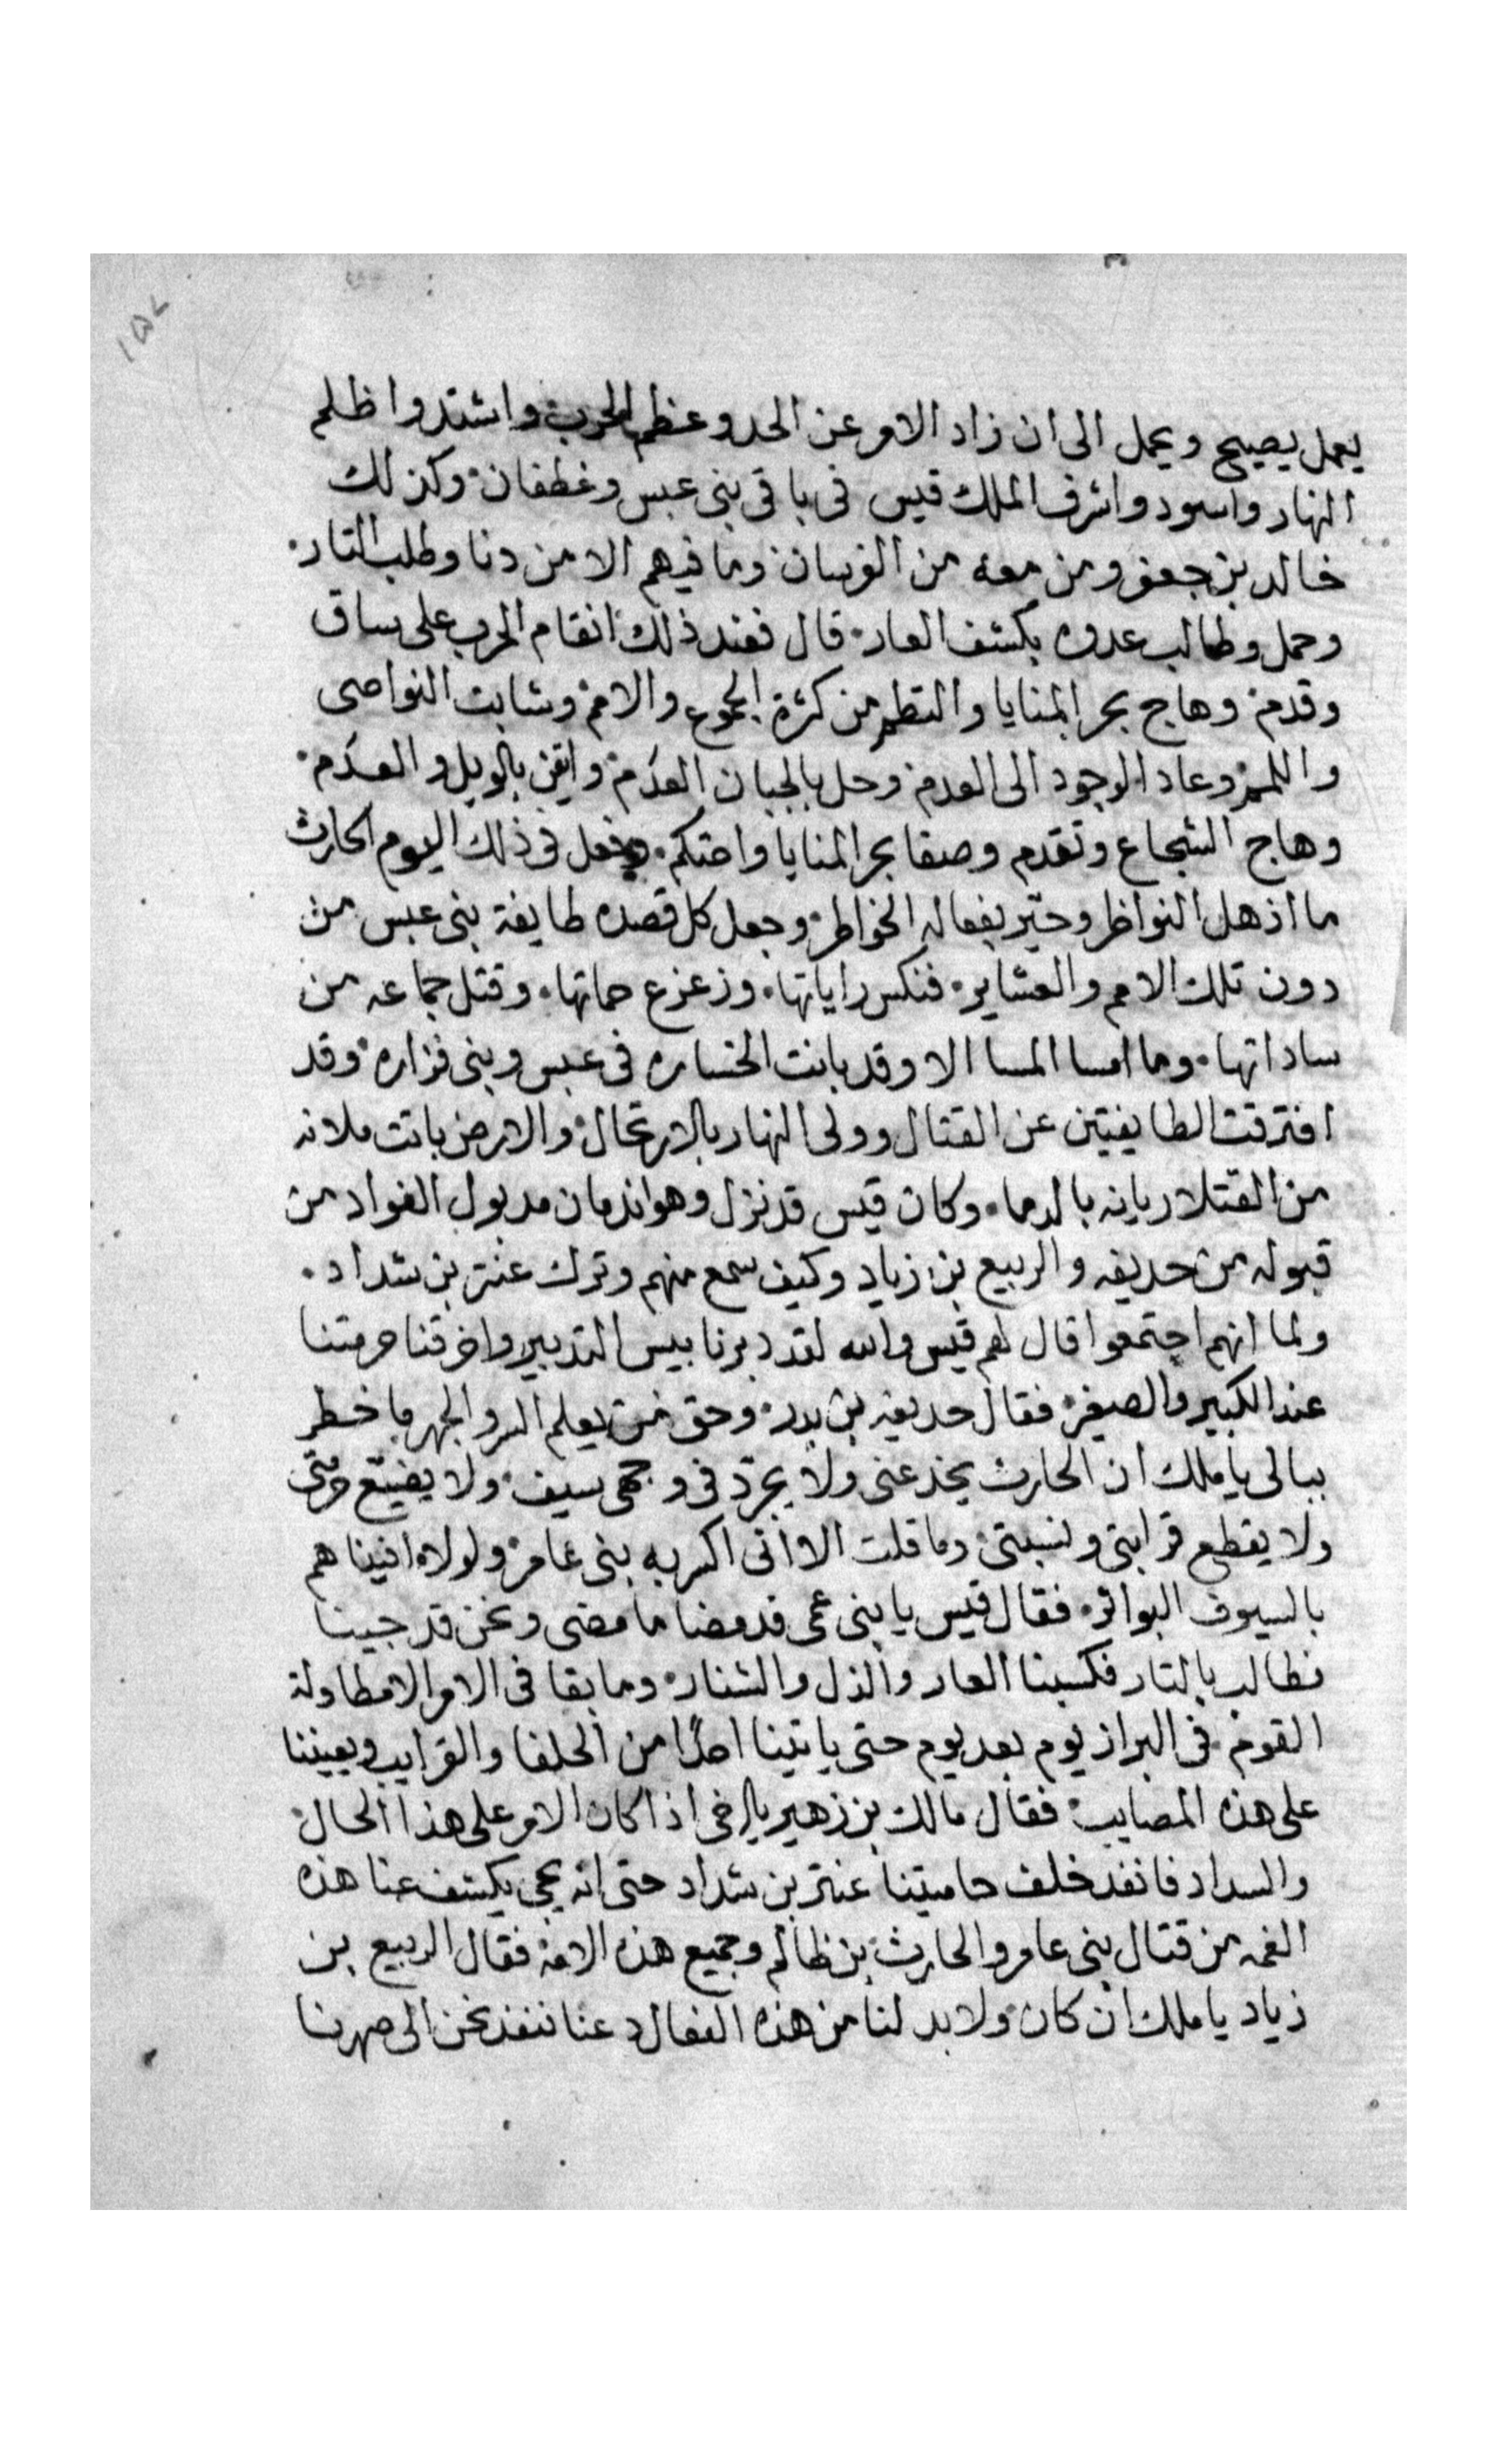 ١٥٧
يعمل يصيح ويحمل الى ان زاد الامر عن الحد وعظم الحرب واشتد واظلم
النهار واسود واشرف الملك قيس فى باقى بنى عبس وغطفان وكذلك
خالد بن جعفر ومن معه من الفرسان وما فيهم الا من دنا وطلب التار
وحمل وطالب عدوه بكشف العار قال فعند ذلك انقام الحرب على ساق
وقدم وهاج بحر المنايا والتطم من كثرة الجموع والامم وشابت النواصى
واللمم وعاد الوجود الى العدم وحل بالجبان العدم وايقن بالويل والعدم
وهاج الشجاع وتقدم وصفا بحر المنايا واحتكم وفعل فى ذلك اليوم الحارث
ما اذهل النواظر وحيّر بفعاله الخواطر وجعل كل قصده طايفة بنى عبس من
دون تلك الامم والعشاير فنكس راياتها وزعزع حماتها وقتل جماعه من
ساداتها وما امسا المسا الا وقد بانت الخساره فى عبس وبنى فزاره وقد
افترقت الطايفيتين عن القتال وولى النهار بالارتحال والارض باتت ملانه
من القتلا ريانه بالدما وكان قيس قد نزل وهو ندمان مدبول الفواد من
قبوله من حديفه والربيع بن زياد وكيف سمع منهم وترك عنتر بن شداد
ولما انهم اجتمعوا قال لهم قيس والله لقد دبرنا بيس التدبير واخرقنا حرمتنا
عند الكبير والصغير فقال حديفه بن بدر وحق من يعلم السر والجهر ما خطر
ببالى يا ملك ان الحارث يخدعنى ولا يجرّد فى وجهى سيف ولا يضيّع حرمتى
ولا يقطع قرابتى ونسبتى وما قلت الا انى اكسر به بنى عامر ولولاه افنيناهم
بالسيوف البواتر فقال قيس يا بنى عمى قد مضا ما مضى ونحن قد جينا
نطالب بالتار فكسبنا العار والذل والشنار وما بقا فى الامر الا مطاولة
القوم فى البراز يوم بعد يوم حتى ياتينا احدًا من الحلفا والقرايب ويعيننا
على هذه المصايب فقال مالك بن زهير يا اخى اذا كان الامر على هذا الحال
والسداد فانفد خلف حاميتنا عنتر بن شداد حتى انه يجى يكشف عنا هذه
الغمه من قتال بنى عامر والحارث بن ظالم وجميع هذه الامه فقال الربيع بن
زياد يا ملك ان كان ولا بد لنا من هذه الفعال دعنا ننفد نحن الى صهرنا